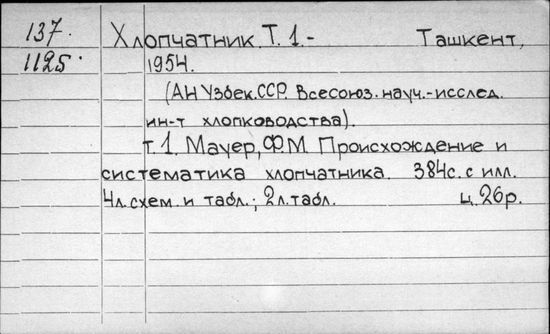 137.
1125.
Хлопчатник. Т. 1.- Ташкент,
1954.
(АН Узбек.ССР. Всесоюз. науч.-исслед.
ин-т хлопководства).
т. 1. Мауер, Ф.М. Происхождение и
систематика хлопчатника. 384с. с илл.
4л.схем. и табл.; 2л.табл. ц. 26р.